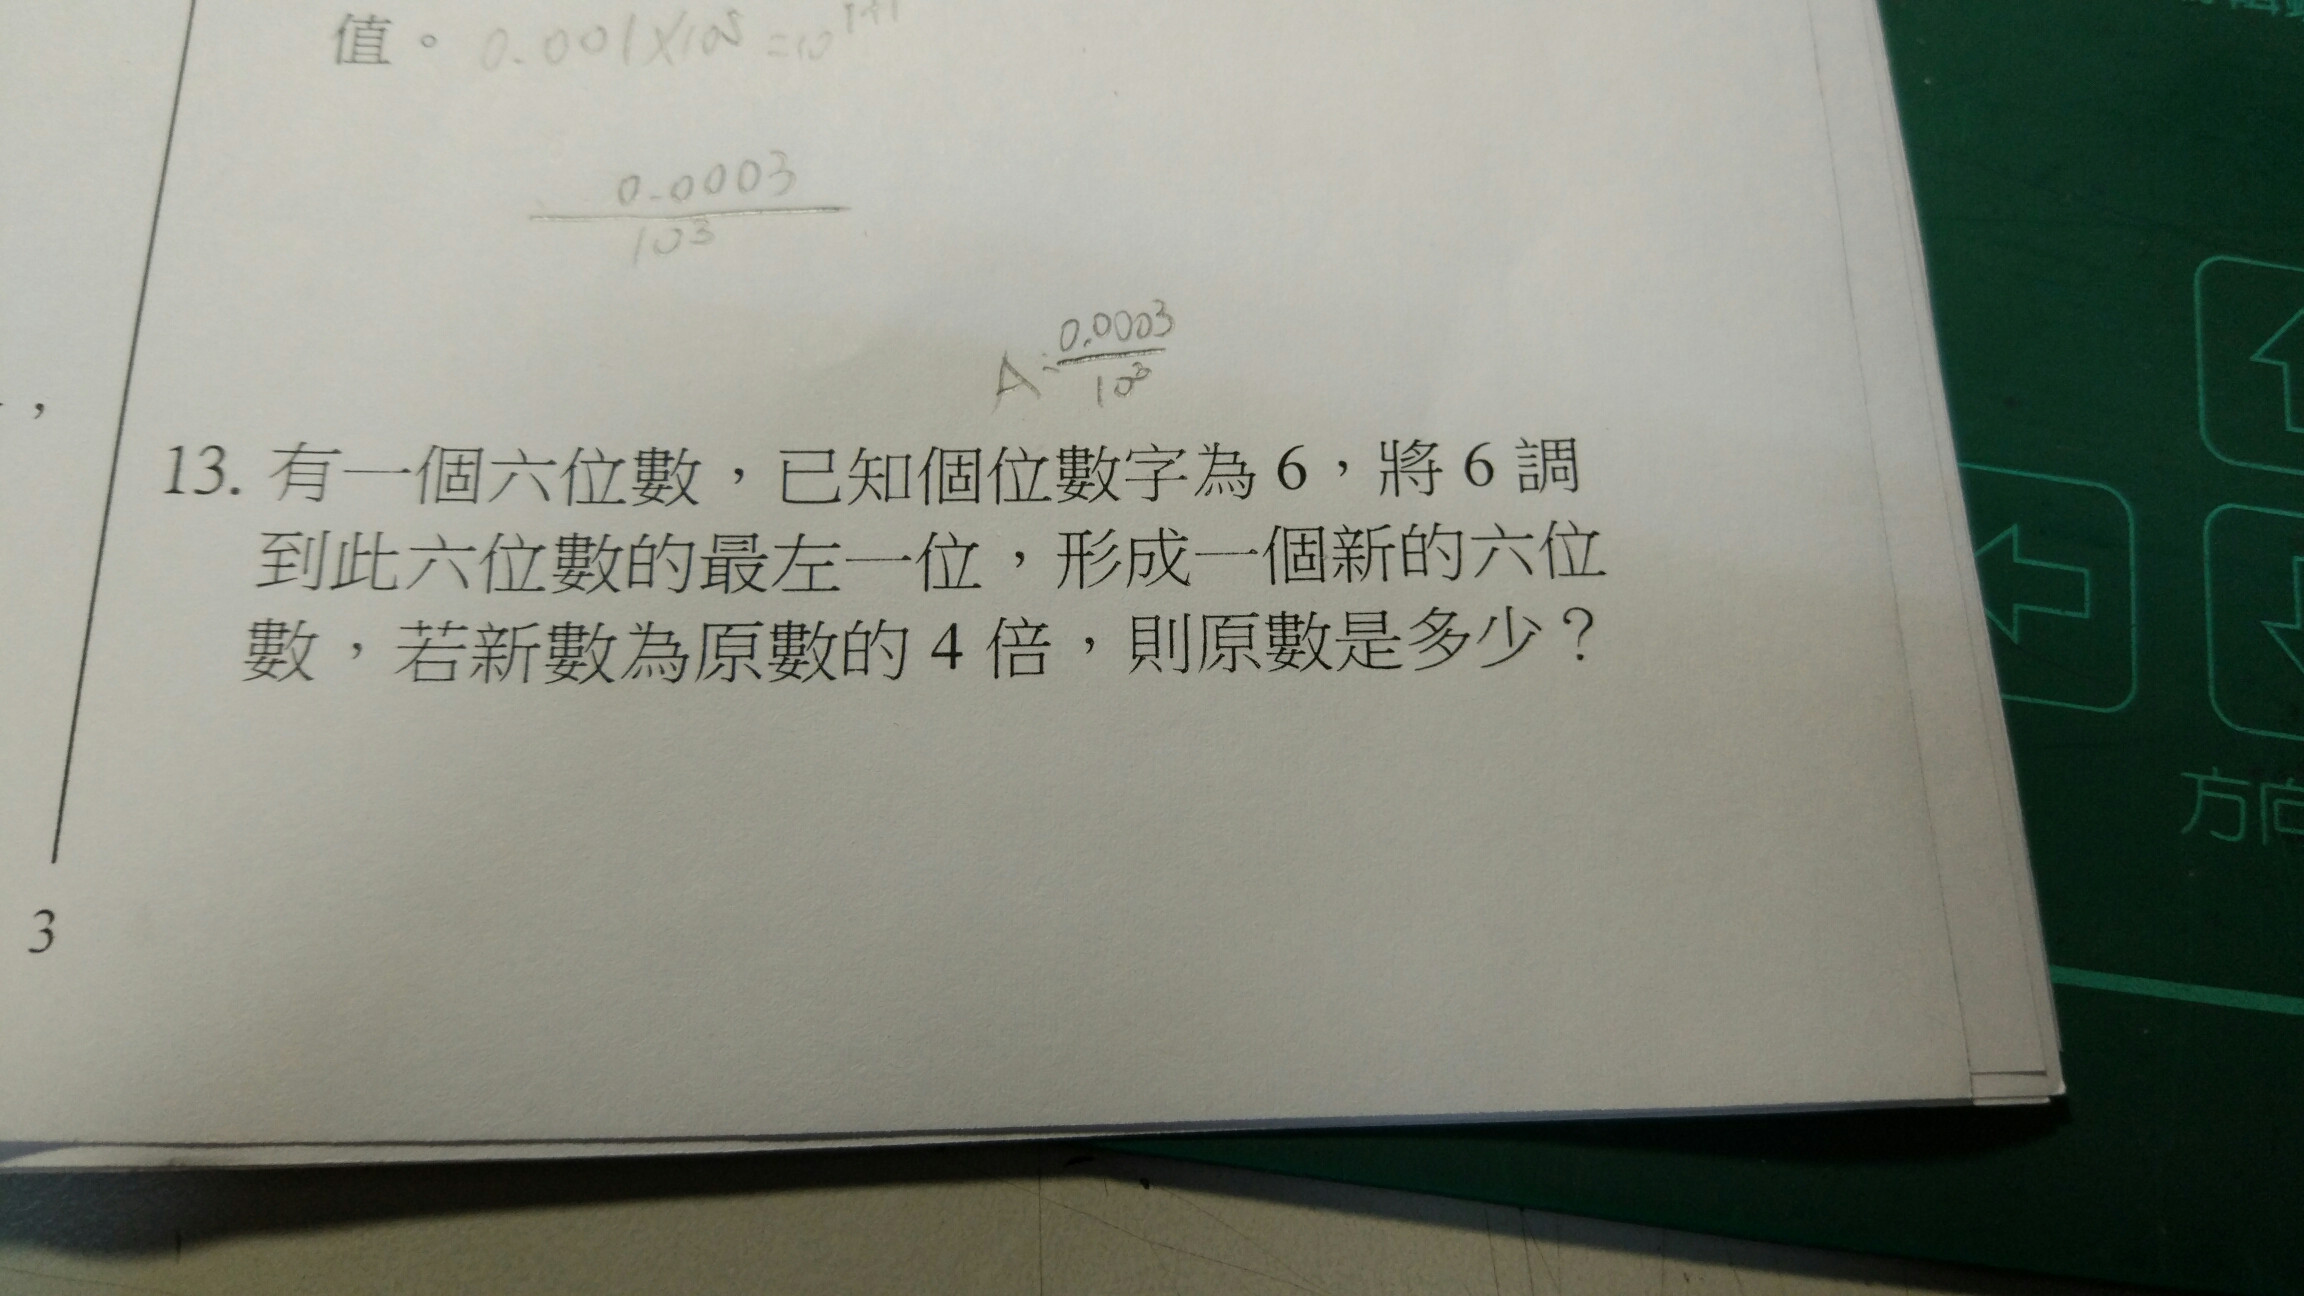 值。 0.001×10⁵ =10
0.0003
10³
A: 0.0003
10³
，
13. 有一個六位數，已知個位數字為 6，將 6 調
到此六位數的最左一位，形成一個新的六位
數，若新數為原數的 4 倍，則原數是多少？
3
方向